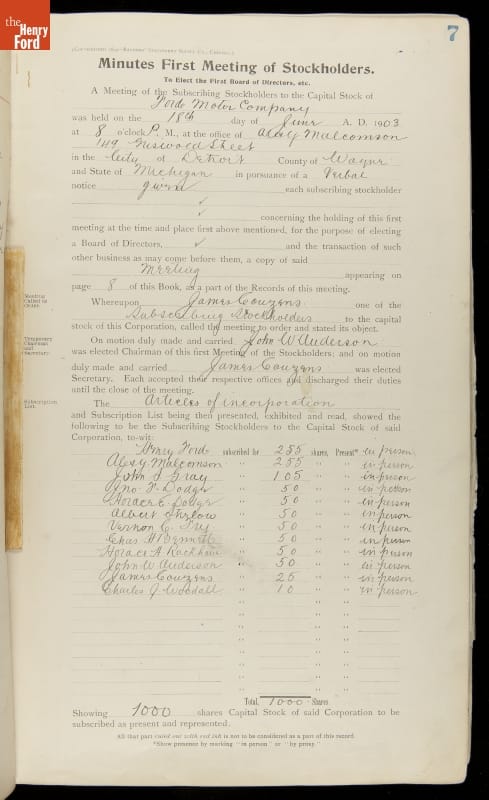 the
Henry
Ford
7
Minutes First Meeting of Stockholders.
To Elect the First Board of Directors, etc.
A Meeting of the Subscribing Stockholders to the Capital Stock of
Ford Motor Company
was held on the 18th day of June A. D. 1903
at 8 o'clock P. M., at the office of Alex Y Malcomson
149 Griswold Street
in the City of Detroit County of Wayne
and State of Michigan in pursuance of a Verbal
notice given each subscribing stockholder
concerning the holding of this first
meeting at the time and place first above mentioned, for the purpose of electing
a Board of Directors, and the transaction of such
other business as may come before them, a copy of said
Meeting appearing on
page 8 of this Book, as a part of the Records of this meeting.
Meeting
Called to
Order
Whereupon James Couzens one of the
Subscribing Stockholders to the capital
stock of this Corporation, called the meeting to order and stated its object.
Temporary
Chairman
and
Secretary
On motion duly made and carried John W Anderson
was elected Chairman of this first Meeting of the Stockholders; and on motion
duly made and carried James Couzens was elected
Secretary. Each accepted their respective offices and discharged their duties
until the close of the meeting.
Subscription
List.
The Articles of incorporation
and Subscription List being then presented, exhibited and read, showed the
following to be the Subscribing Stockholders to the Capital Stock of said
Corporation, to-wit:
Henry Ford subscribed for 255 shares, Present* in person
Alex Y Malcomson " 255 " " in person
John S Gray " 105 " " in person
Jno F Dodge " 50 " " in person
Horace E Dodge " 50 " " in person
Albert Strelow " 50 " " in person
Vernon C. Fry " 50 " " in person
Chas H Bennett " 50 " " in person
Horace A Rackham " 50 " " in person
John W Anderson " 50 " " in person
James Couzens " 25 " " in person
Charles J Woodall " 10 " " in person
Total, 1000 Shares
Showing 1000 shares Capital Stock of said Corporation to be
subscribed as present and represented.
All that part ruled out with red ink is not to be considered as a part of this record.
*Show presence by marking "in person" or "by proxy."